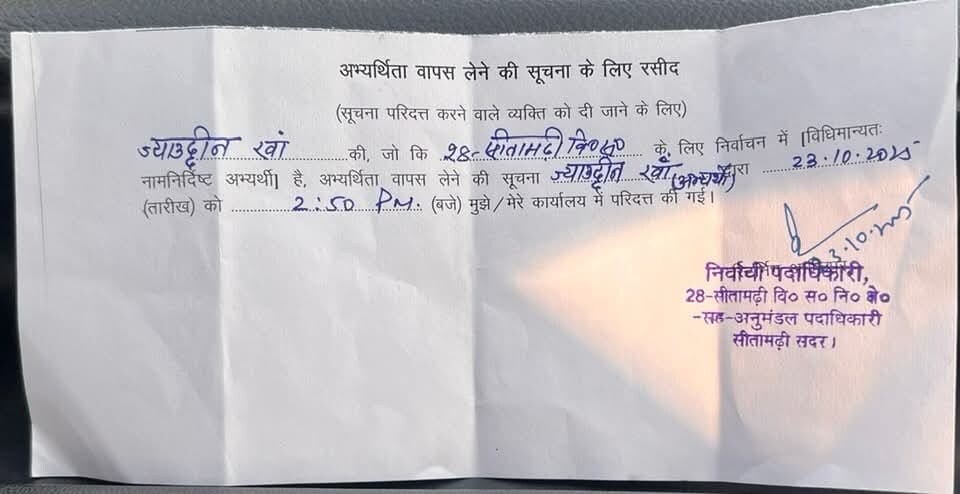 अभ्यर्थिता वापस लेने की सूचना के लिए रसीद
(सूचना परिदत्त करने वाले व्यक्ति को दी जाने के लिए)
ज्याउद्दीन खां की, जो कि 28-सीतामढ़ी वि०स० के लिए निर्वाचन में [विधिमान्यतः
नामनिर्दिष्ट अभ्यर्थी] है, अभ्यर्थिता वापस लेने की सूचना ज्याउद्दीन खां (अभ्यर्थी) द्वारा 23.10.2025
(तारीख) को 2:50 PM. (बजे) मुझे/मेरे कार्यालय में परिदत्त की गई।
23.10.2025
निर्वाची पदाधिकारी,
28-सीतामढ़ी वि० स० नि० क्षे०
-सह-अनुमंडल पदाधिकारी
सीतामढ़ी सदर।